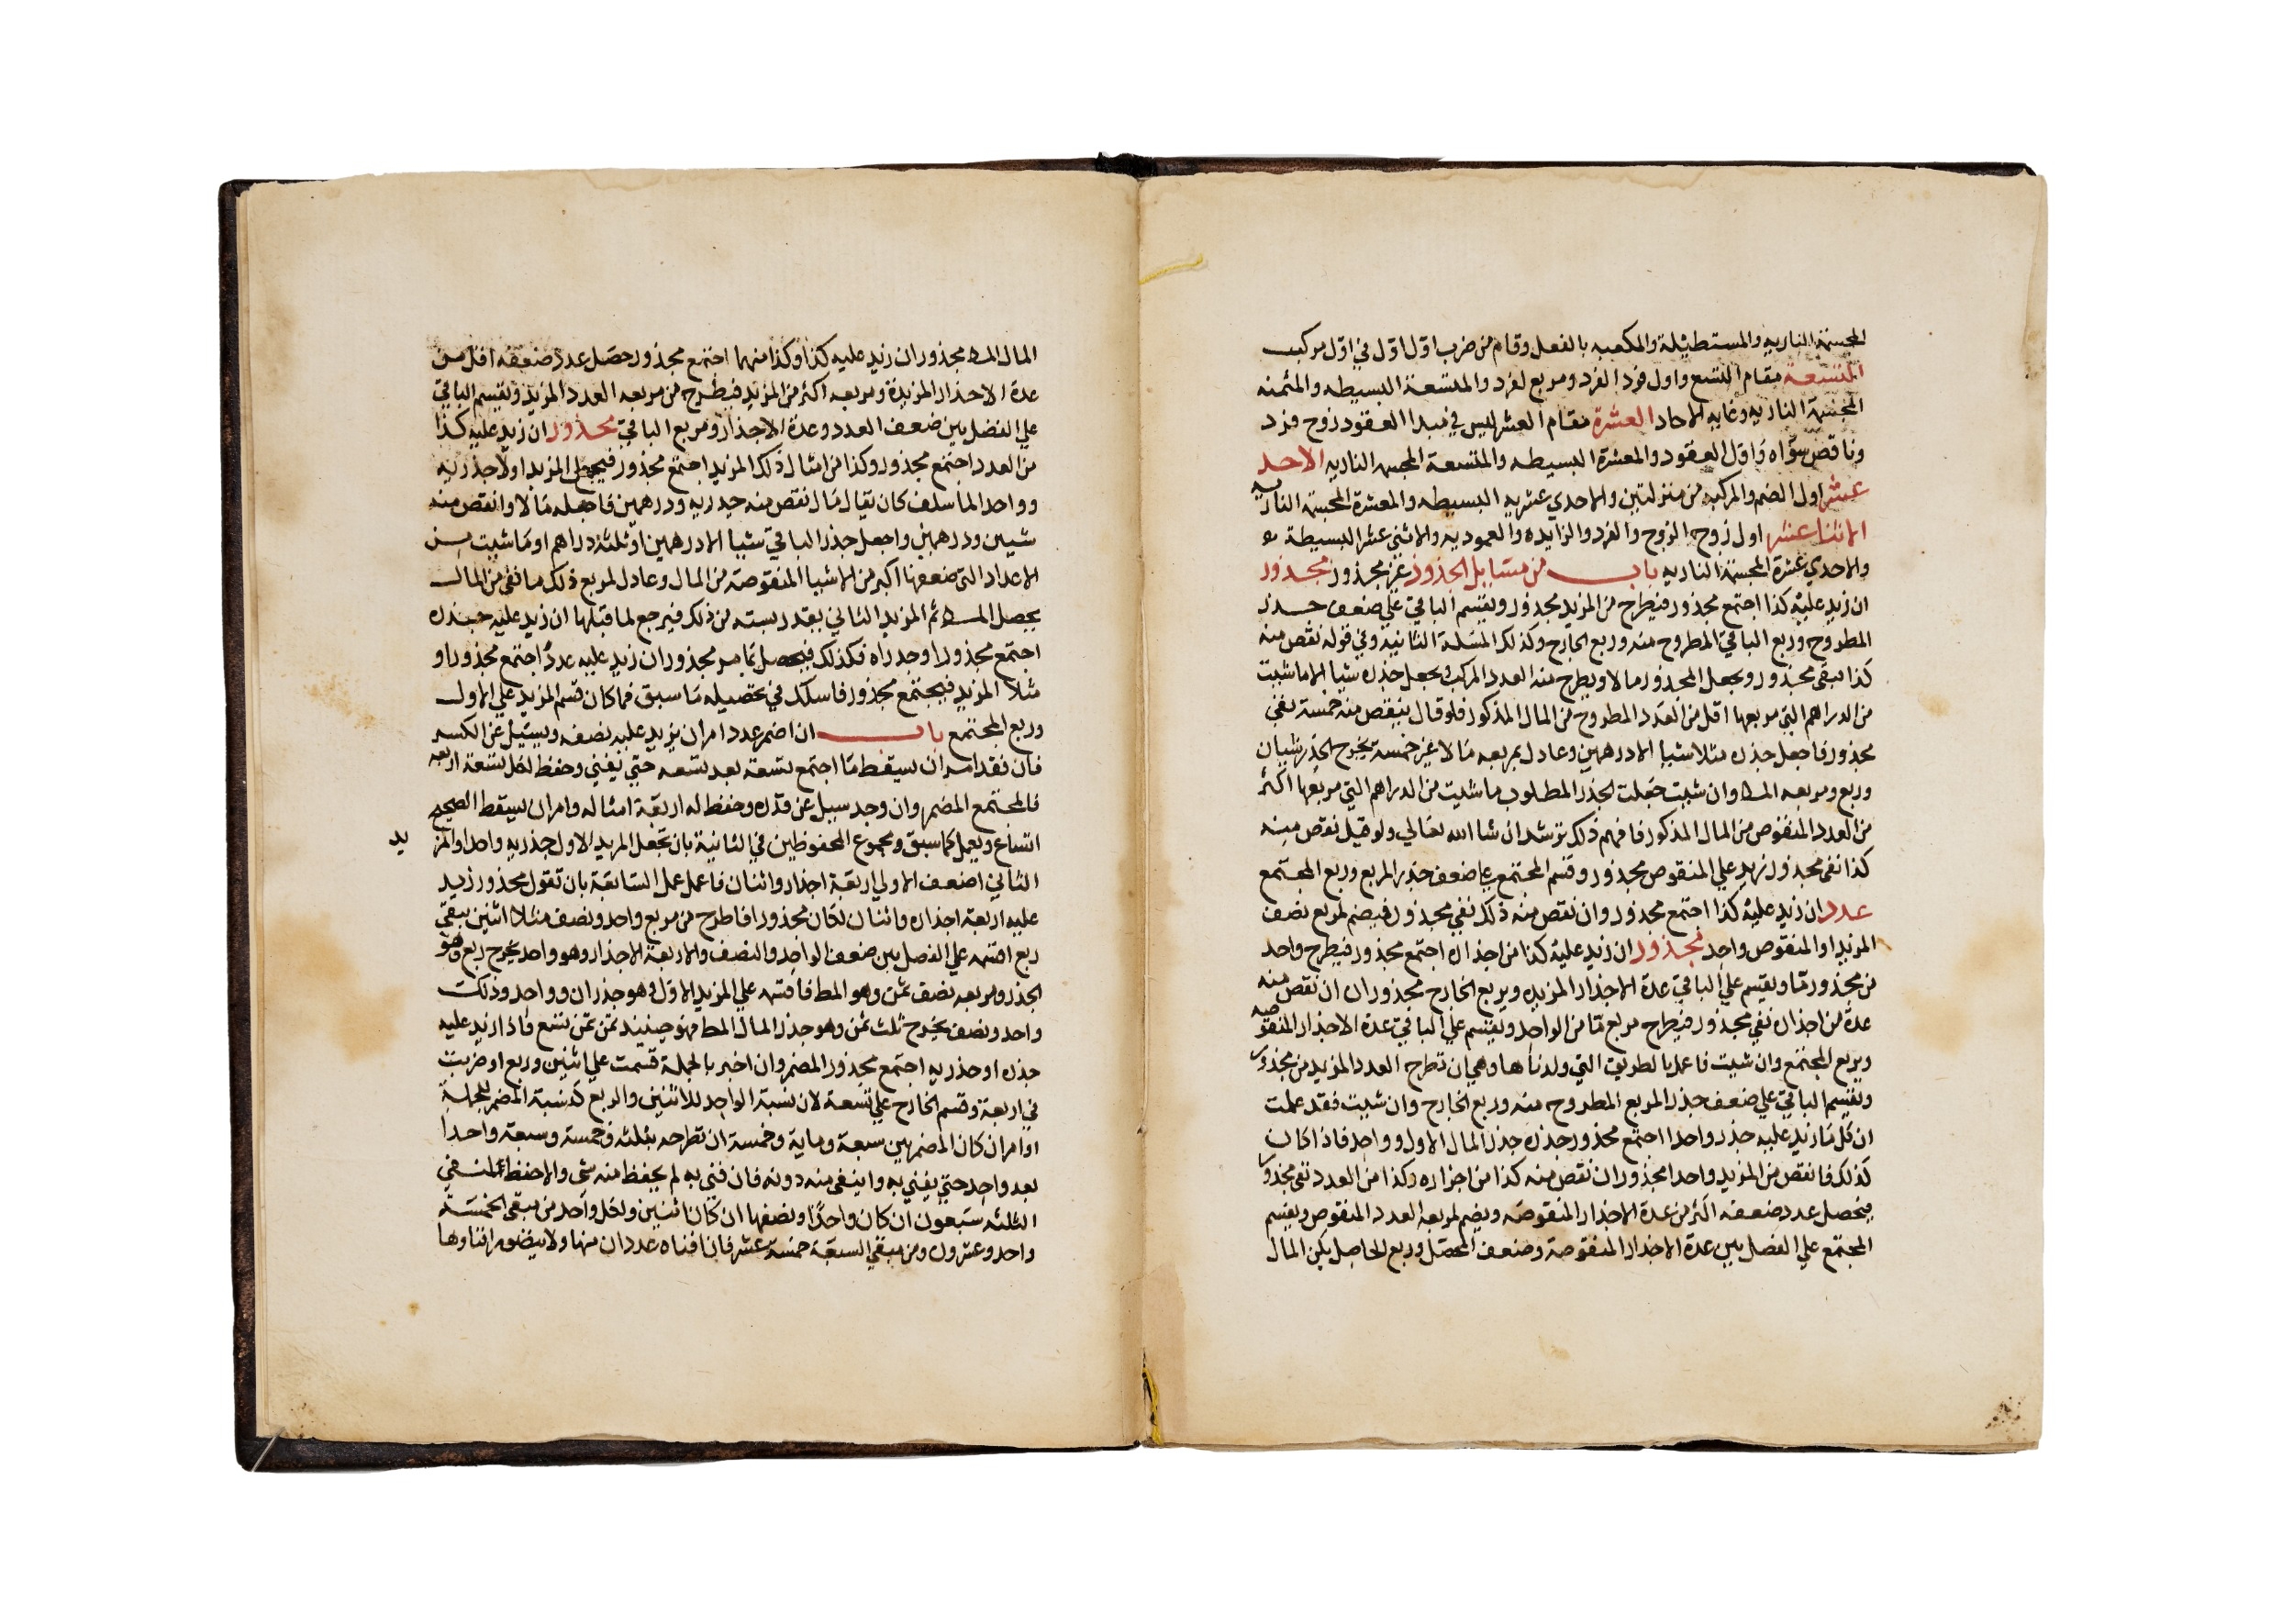 المجسمة النارية والمستطيلة والمكعبه بالفعل وقام من ضرب اوّل اوّل في اوّل مركب
التسعة مقام التسع واول فرد الفرد ومربع لفرد والمتسعة البسيطه والمثمنه
المجسمة الناريه وغايه الاحاد العشرة مقام العشر ليس في مبدا العقود زوج فرد
وناقص سوّاه وَاوّل العقود والمعشرة البسيطه والمتسعة المجسمه الناريه الاحد
عشر اول الضم والمركبه من منزلتين والاحدي عشريه البسيطه والمعشرة المجسمة الناريه
الاثنا عشر اول زوج الزوج والفرد والزايده والعموديه والاثني عشر البسيطة
والاحدي عشرة المجسمة الناريه باب من مسَايل الجذور غير مجذور مجذور
ان زيد عليه كذا اجتمع مجذور فيطرح من المزيد مجذور ويقسم الباقي علي ضعف جذر
المطروح وربع الباقي المطروح منه وربع الخارج وكذلك المسَلة الثانيه وفي قوله نقص منه
كذا فبقى مجذور ويجعل المجذور مالا ويطرح منه العدد المركب ويجعل جذره شيا الاما شيت
من الدراهم التي مربعها اقل من العَدد المطروح من المال المذكور فلو قال ينقص منه خمسة يبقي
مجذور فاجعل جذره مثلا شيا الا درهمين وعادل بمربعه مَالا غير خمسة يخرج الجذر شيان
وربع ومربعه المط وان شيت جَعلت لجذر المطلوب ما شيت من الدراهم التي مربعَها اكثر
من العدد المنقوص من المال المذكور فافهم ذلك ترشد ان شا الله تعَالي ولو قيل نقص منه
كذا نفى مجذور زيد علي المنقوص مجذور وقسم المجتمع علي ضعف جذر المربع وربع المجتمع
عدد ان زيد عليه كذا اجتمع مجذور وان نقص منه ذلك نفي مجذور فيضم لمربع نصف
المزيد او المنقوص واحد مجذور ان زيد عليه كذا من اجذاره اجتمع مجذور فيطرح واحد
من مجذور مّا ويقسم علي الباقي عدة الاجذار المزيده ويربع الخارج مجذور ان نقص منه
عدة من اجذاره نفي مجذور فيطرح مربع مّا من الواحد ويقسم علي الباقي عدة الاجذار المنقوصه
ويربع المجتمع وان شيت فاعمل بالطريق التي ولدناها وهي ان تطرح العدد المزيد من مجذور
وتقسم الباقي علي ضعف جذر المربع المطروح منه وربع الخارج وان شيت فقد عملت
ان كل مَا زيد عليه جذر واحدا اجتمع مجذور جذره جذر المال الاول وواحد فاذا كان
كذلك فانقص من المزيد واحدا مجذور ان نقص منه كذا من اجزاره وكذا من العدد نفى مجذور
فيحصل عدد ضعفه اكثر من عدة الاجذار المنقوصَه ويضم لمربعه العدد المنقوص ويقسم
المجتمع علي الفضل بين عدة الاجذار المنقوصة وضعف المحصّل وربع الحاصل يكن المال
المال المط مجذور ان زيد عليه كذا وكذا منهما اجتمع مجذور حصَل عدد ضعفه اقل من
عدة الاجذار المزيدة ومربعه اكثر من المزيد فيطرح من مربعه العدد المزيد ويقسم الباقي
علي الفضل بين ضعف العدد وعدة الاجذار ومربع الباقي مجذور ان زيد عليه كذا
من العدد اجتمع مجذور وكذا من امثال ذلك المزيد اجتمع مجذور فيجعل المزيد اولا جذريه
وواحد الما سلف كان يقال مَال نقص منه جذريه ودرهمين فاجعله مَالا وانقص منه
شيين ودرهمين واجعل جذر الباقي شيا الا درهمين او ثلثة دراهم او مَا شيت من
الاعداد التي ضعفها اكبر من الاشيا المنقوصة من المال وعادل لمربع ذلك ما نفى من المال
يحصل المط ثم المزيد الثاني بقدر نسبته من ذلك فيرجع لما قبلها ان زيد عليه جذره
اجتمع مجذورا وجذراه فكذلك فيحصل بما مر مجذور ان زيد عليه عددٌ اجتمع مجذور او
مثلا المزيد فيجتمع مجذور فاسلك في تحصيله مَا سبق فما كان قسم المزيد علي الاول
وربع المجتمع باب ان اضمر عدد امر ان يزيد عليه نصفه ويسَيل عن الكسر
فان فقد امر ان يسقط مَا اجتمع تسعة بعد تسعه حتي يفني وحفظ لكل تسعة اربعه
فالمجتمع المضمر وان وجد سيل عن قدره وحفظ له اربعة امثاله وامر ان يسقط الصحيح
اتساع ويعمل كما سبق ومجموع المحفوظين في الثانية بان تجعل المزيد الاول جذريه واحدا والمز
يد
الثاني اضعف الاولي اربعة اجذار واثنان فاعمل عمل السّابقة بان تقول مجذور زيد
عليه اربعة اجذاره واثنان لكان مجذورا فاطرح من مربع واحد ونصف مثلا اثنين يبقى
ربع اقسمه علي الفضل بين ضعف الواحد والنصف والاربعة الاجذار وهو واحد يخرج ربع وهو
الجذر ومربعه نصف ثمن وهو المط فاقسمه علي المزيد الاوّل وهو جذران وواحد وذلك
واحد ونصف يخرج ثلث ثمن وهو جذر المال المط فهو حينيذ ثمن ثمن تسع فاذا زيد عليه
جذره او جذريه اجتمع مجذور المضمر وان اخبر بالجملة قسمت علي اثنين وربع او ضربت
في اربعة وقسم الخارج علي تسعة لان نسَبة الواحد للاثنين والربع كنسَبة المضمر للجملة
او امر ان كان المضمر بين سبعة وماية وخمسة ان تطرحه بثلثه وخمسة وسبعة واحدا
بعد واحد حتي يفني به وا ينفى منه دونه فان فني به لم يحفظ منه شى والاحفظ لمنفي
الثلثه سَبعون ان كان واحدًا وضعفها ان كَان اثنين ولكل وَاحد من مبقى الخمسَة
واحد وعشرون ومن مبقي السبعَة خمسة عشر فان افناه عددان منها ولا يضم افناوها